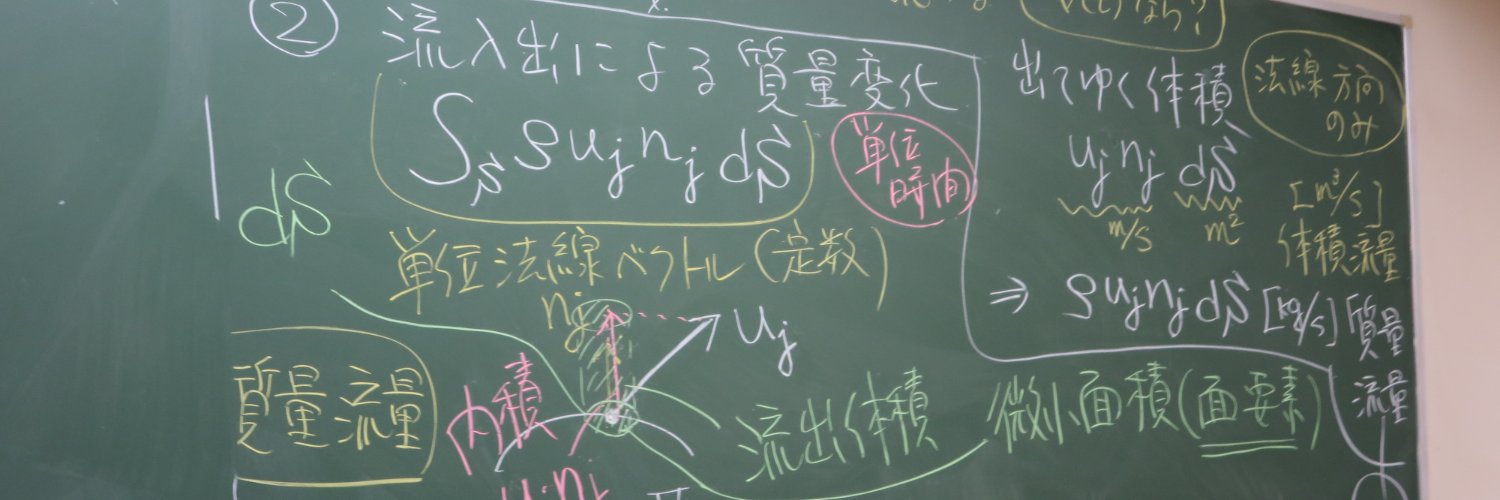 ② 流入出による質量変化
∫_S ρu_j n_j dS
単位
時間
dS
単位法線ベクトル(定数)
n_j
u_j
質量流量
内積
u_j n_j
流出体積
微小面積(面要素)
なら?
出てゆく体積
法線方向
のみ
u_j n_j dS
m/s m²
[m³/s]
体積流量
⇒ ρu_j n_j dS [kg/s] 質量
流量